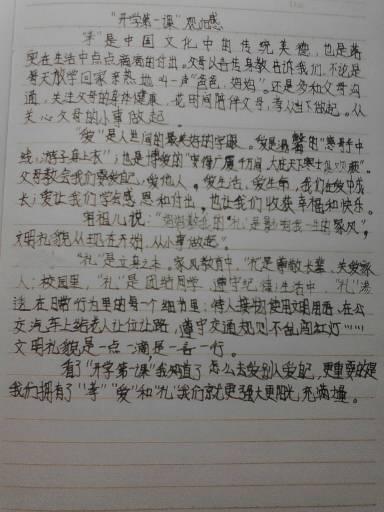 "开学第一课"观后感
"孝"是中国文化中的传统美德,也是落
实在生活中点点滴滴的付出。父母以言传身教告诉我们,不论是
每天放学回家亲热地叫一声"爸爸、妈妈"。还是多和父母沟
通,关注父母的身体健康,花时间陪伴父母,孝从当下做起。从
关心父母的小事做起。
"爱"是人世间的最美好的字眼。爱是温馨的"慈母手中
线,游子身上衣";也是博爱的"安得广厦千万间,大庇天下寒士俱欢颜"。
父母教会我们要爱自己,爱他人。爱生活,爱生命,我们在爱中成
长;爱让我们学会感恩和付出,也让我们收获幸福和快乐。
文明礼貌从现在开始,从小事做起。
"礼"是立身之本,家风教育中,"礼"是尊敬长辈、关爱家
人;校园里,"礼"是团结同学,遵守纪律;生活中"礼"渗
透在日常行为里的每一个细节里:待人接物使用文明用语,在公
交汽车上给老人让位让路,遵守交通规则不乱闯红灯……
文明礼貌是一点一滴,是一言一行。
看了"开学第一课"我知道了怎么去爱别人爱自己,更重要的是
我们拥有了"孝""爱"和"礼"我们就更强大更阳光,充满